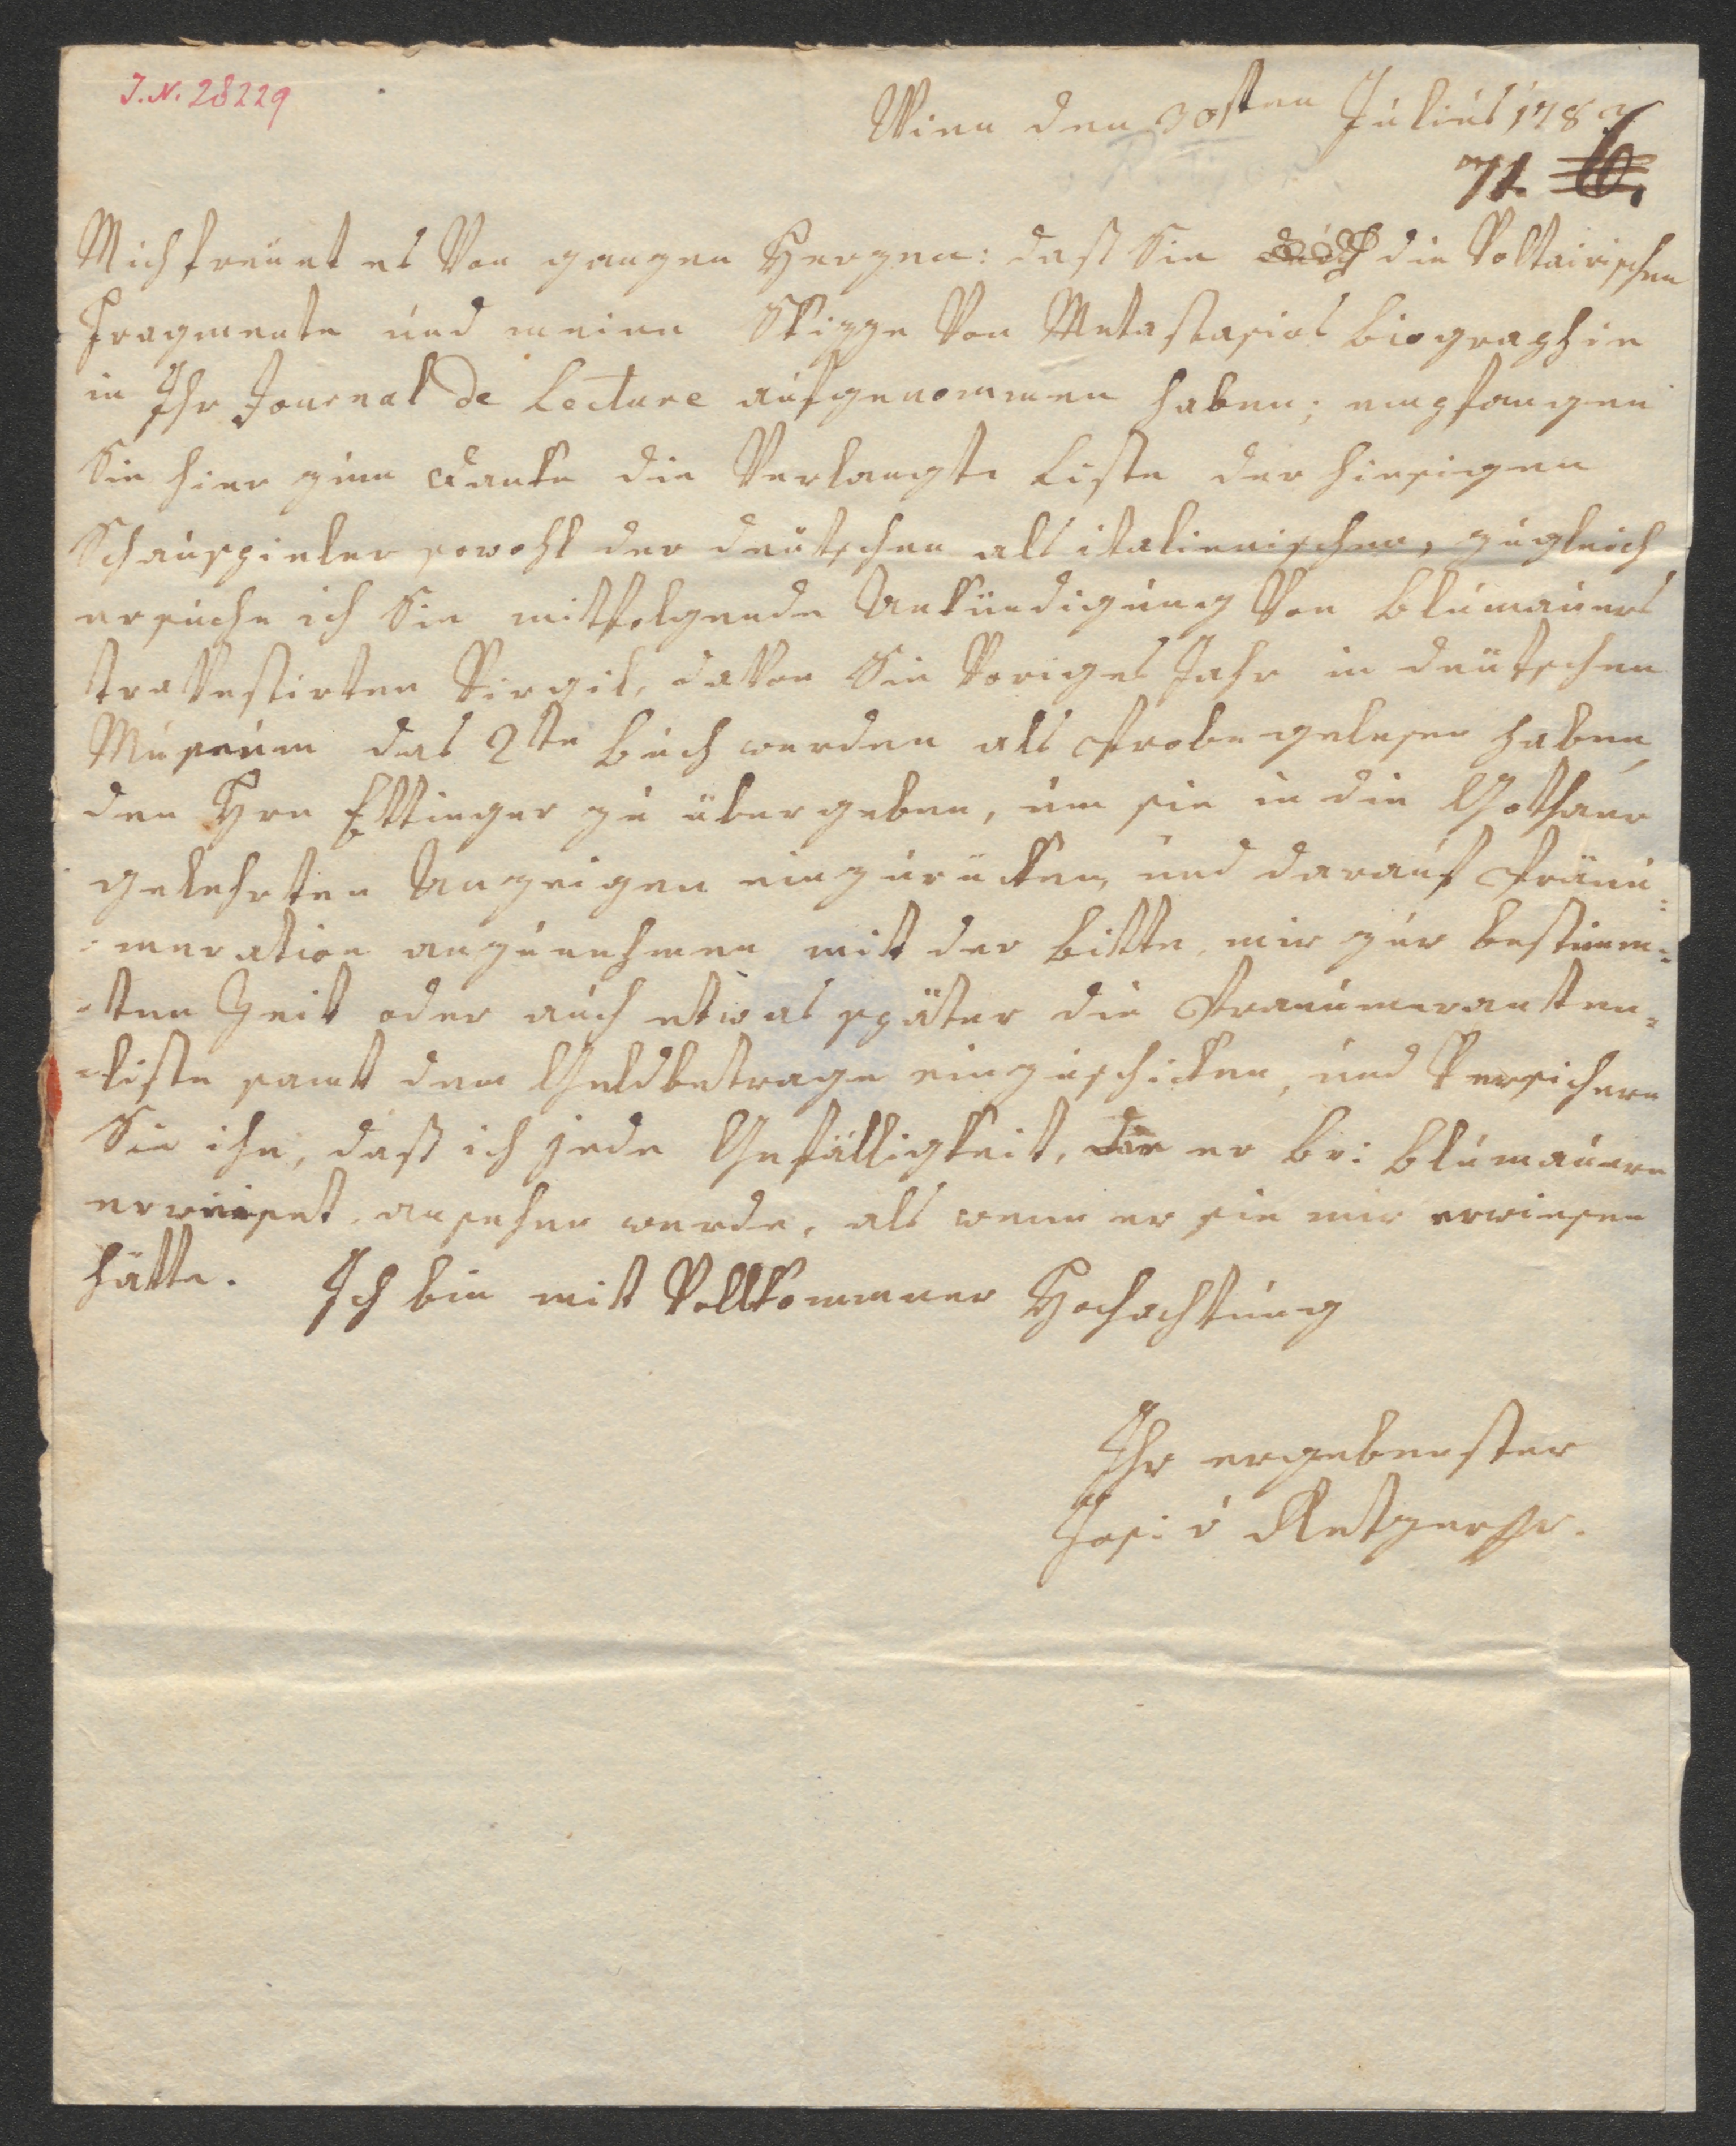 J.N. 28229
Wien den 30sten Julius 1783
71.
Mich freuet es von ganzen Herzen: daß Sie die Voltairischen
Fragmente und meine Skizze von Metastasios Biographie
in Ihr Journal de Lecture aufgenommen haben; empfangen
Sie hier zum Danke die Verlangte Liste der hiesigen
Schauspieler sowohl der deutschen als italienischen, zugleich
ersuche ich Sie mitfolgende Ankündigung von Blumauers
travestirten Virgil, davon Sie voriges Jahr in deutschen
Museum das 2te Buch werden als Probe gelesen haben,
den Hrn Ettinger zu übergeben, um sie in die Gothaer
gelehrten Anzeigen einzurücken, und darauf Pränu=
=meration anzunehmen mit der Bitte, mir zur bestimm=
=ten Zeit oder auch etwas später die Pranumeranten=
=liste samt dem Geldbetrage einzuschicken, und Versichern
Sie ihn, daß ich jede Gefälligkeit, die er bei Blumauern
erweiset, ansehen werde, als wenn er sie mir erwiesen
hätte. Ich bin mit Vollkommner Hochachtung
Ihr ergebenster
Jos: v Retzer